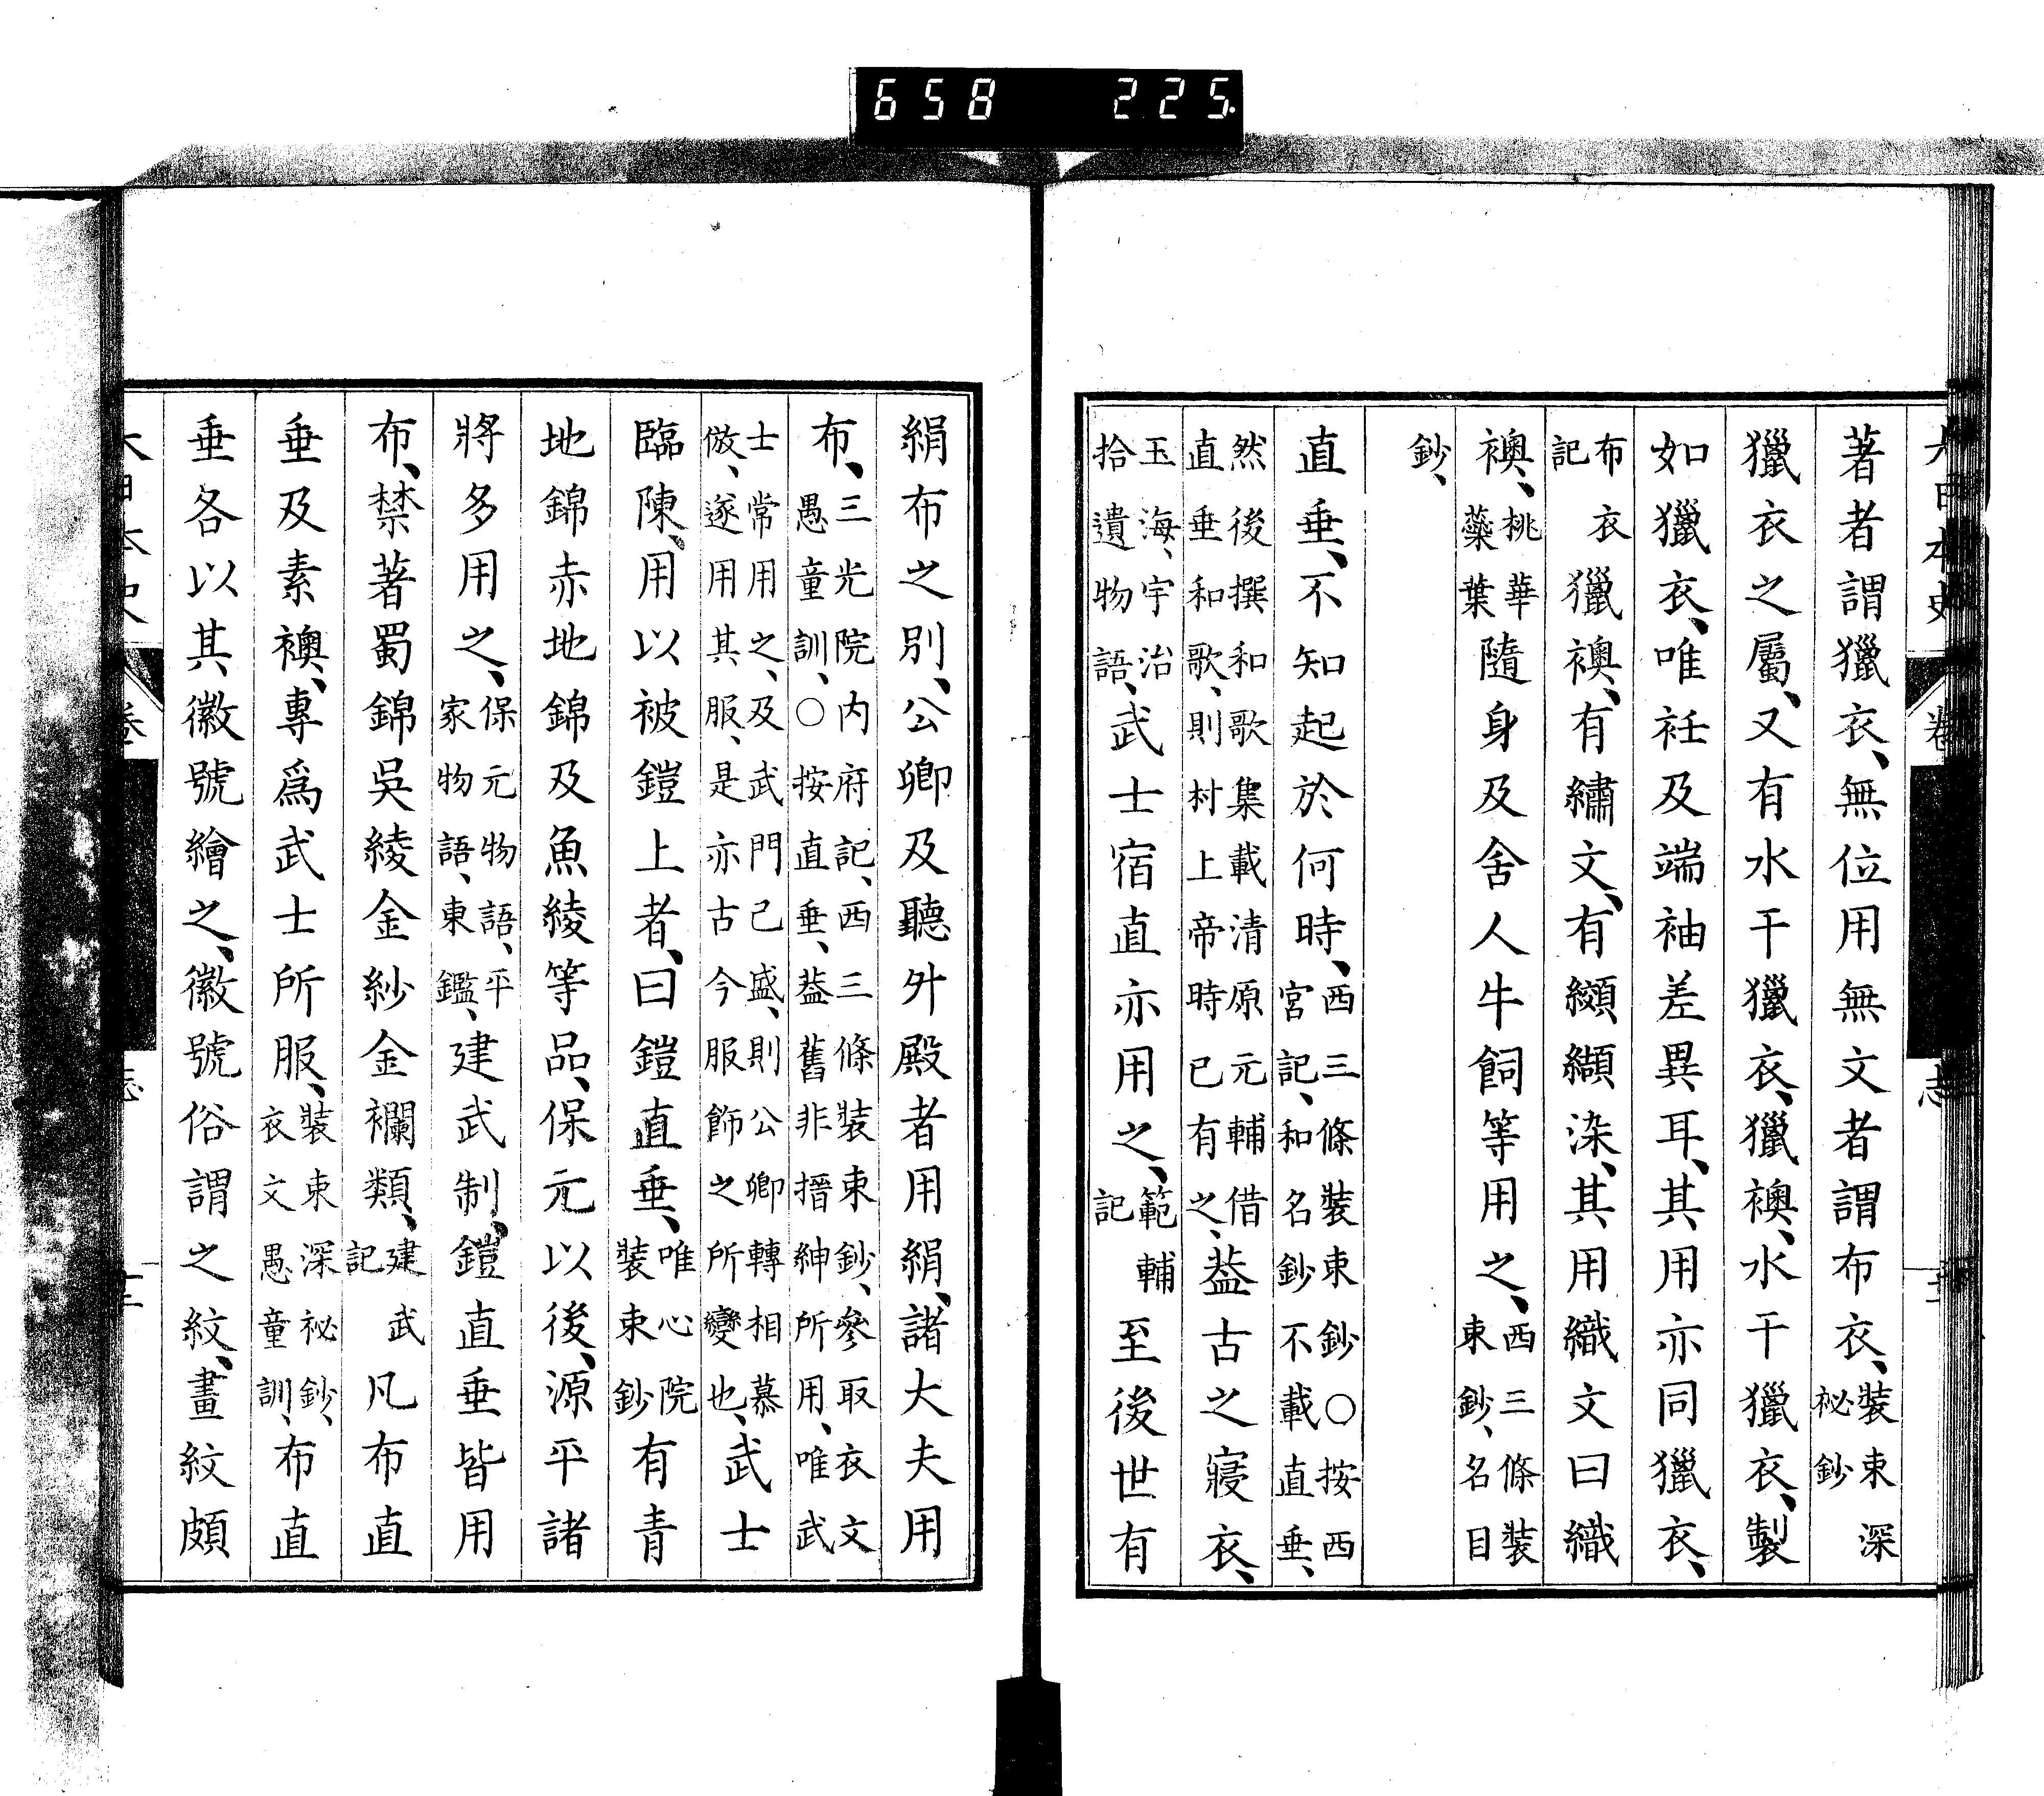 658 225.
著者謂獵衣、無位用無文者謂布衣、裝束深祕鈔
獵衣之屬、又有水干獵衣、獵襖、水干獵衣、製
如獵衣、唯衽及端袖差異耳、其用亦同獵衣、
布衣記獵襖、有繡文、有纐纈染、其用織文曰織
襖、桃華蘂葉隨身及舍人牛飼等用之、西三條裝束鈔、名目
鈔、
直垂、不知起於何時、西三條裝束鈔○按西宮記、和名鈔不載直垂、
然後撰和歌集載清原元輔借直垂和歌、則村上帝時已有之、葢古之寢衣、
玉海、宇治拾遺物語、武士宿直亦用之、範輔記至後世有
絹布之別、公卿及聽昇殿者用絹、諸大夫用
布、三光院內府記、西三條裝束鈔、參取衣文愚童訓、○按直垂、葢舊非搢紳所用、唯武
士常用之、及武門已盛、則公卿轉相慕倣、遂用其服、是亦古今服飾之所變也、武士
臨陳、用以被鎧上者、曰鎧直垂、唯心院裝束鈔有青
地錦赤地錦及魚綾等品、保元以後、源平諸
將多用之、保元物語、平家物語、東鑑、建武制、鎧直垂皆用
布、禁著蜀錦吳綾金紗金襴類、建武記凡布直
垂及素襖、專爲武士所服、裝束深祕鈔、衣文愚童訓、布直
垂各以其徽號繪之、徽號俗謂之紋、畫紋頗